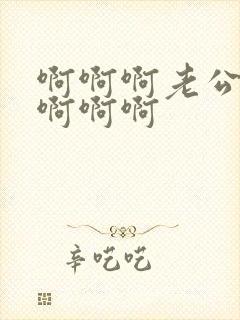 啊啊啊老公
啊啊啊
辛吃吃